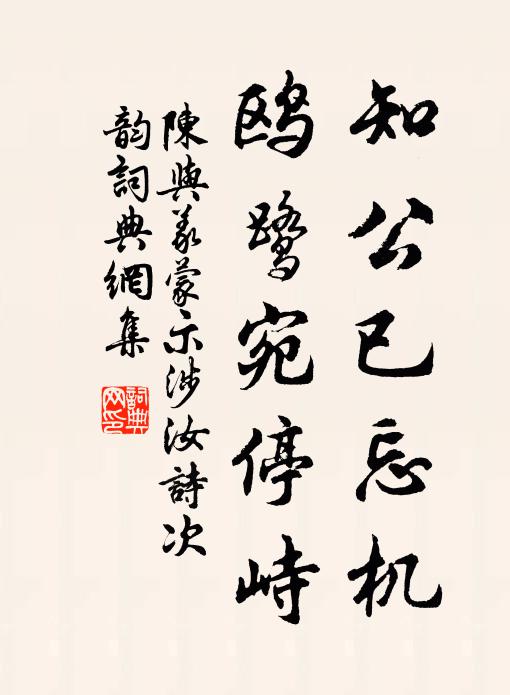 知公已忘机
鸥鹭宛停峙
陳與義蒙示涉汝詩次
韵詞典網集
詞典网印